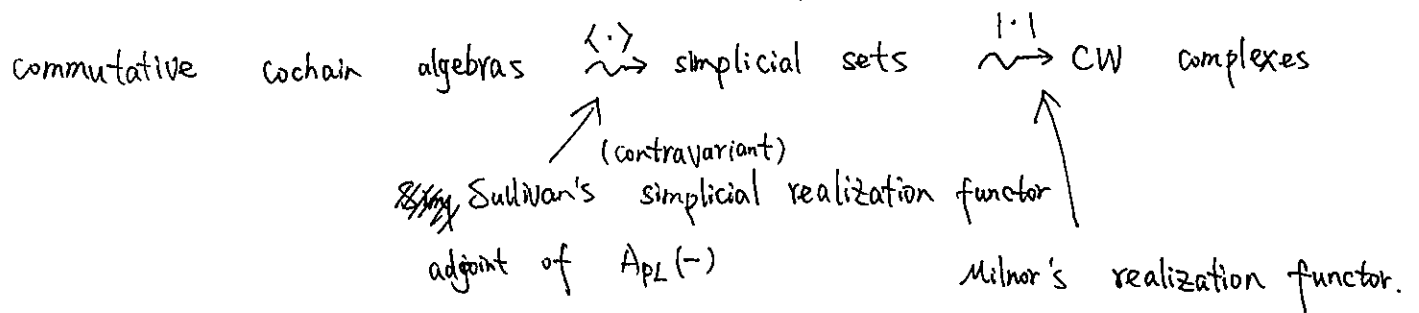 commutative cochain algebras ⟨·⟩ ⇝ simplicial sets |·| ⇝ CW complexes
(contravariant)
Sullivan's simplicial realization functor
adjoint of A_{PL}(-)
Milnor's realization functor.